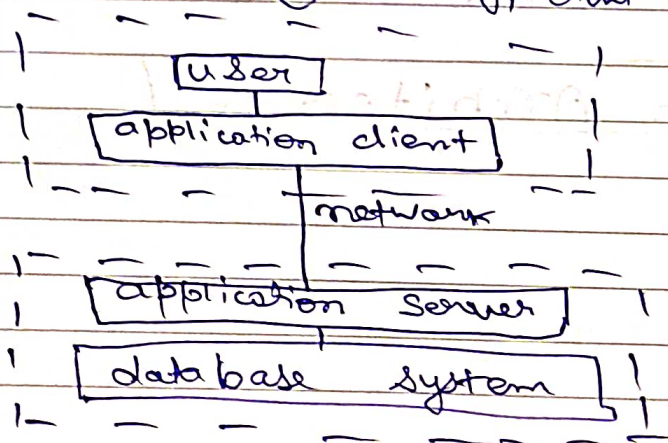 user
application client
network
application server
database system